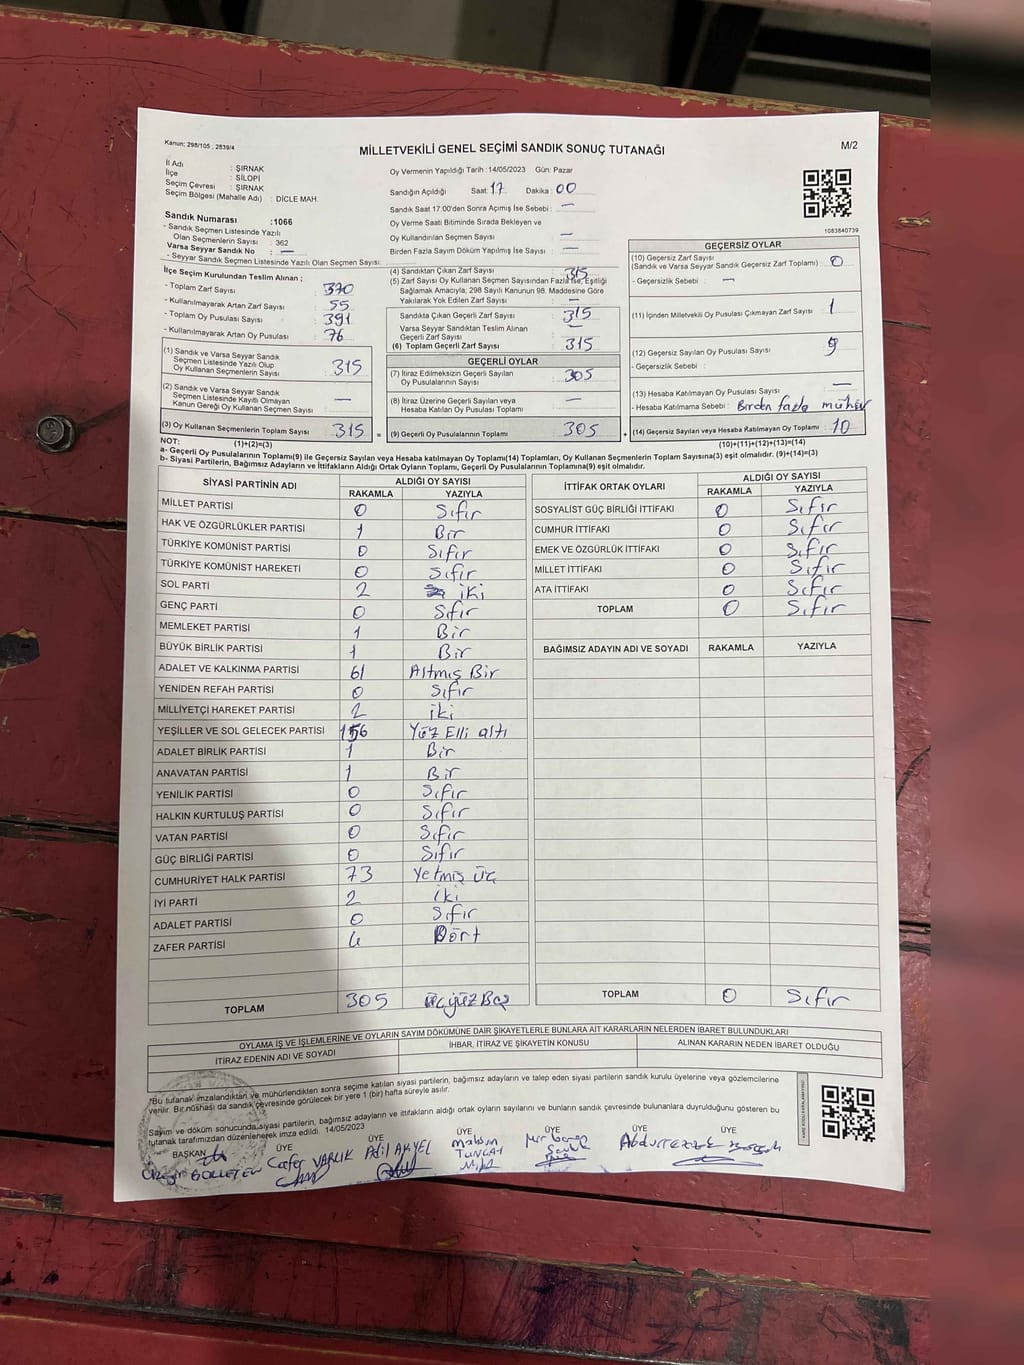 Kanun; 298/105 , 2839/4
MİLLETVEKİLİ GENEL SEÇİMİ SANDIK SONUÇ TUTANAĞI
M/2
İl Adı : ŞIRNAK
İlçe : SİLOPİ
Seçim Çevresi : ŞIRNAK
Seçim Bölgesi (Mahalle Adı) : DİCLE MAH.
Sandık Numarası :1066
- Sandık Seçmen Listesinde Yazılı
Olan Seçmenlerin Sayısı : 362
Varsa Seyyar Sandık No : —
- Seyyar Sandık Seçmen Listesinde Yazılı Olan Seçmen Sayısı:
İlçe Seçim Kurulundan Teslim Alınan ;
- Toplam Zarf Sayısı : 370
- Kullanılmayarak Artan Zarf Sayısı : 55
- Toplam Oy Pusulası Sayısı : 391
- Kullanılmayarak Artan Oy Pusulası : 76
(1) Sandık ve Varsa Seyyar Sandık
Seçmen Listesinde Yazılı Olup
Oy Kullanan Seçmenlerin Sayısı : 315
(2) Sandık ve Varsa Seyyar Sandık
Seçmen Listesinde Kayıtlı Olmayan
Kanun Gereği Oy Kullanan Seçmen Sayısı : —
(3) Oy Kullanan Seçmenlerin Toplam Sayısı : 315
Oy Vermenin Yapıldığı Tarih :14/05/2023 Gün: Pazar
Sandığın Açıldığı Saat: 17 Dakika : 00
Sandık Saat 17:00'den Sonra Açımış İse Sebebi : —
Oy Verme Saati Bitiminde Sırada Bekleyen ve
Oy Kullandırılan Seçmen Sayısı : —
Birden Fazla Sayım Dökümü Yapılmış İse Sayısı : —
(4) Sandıktan Çıkan Zarf Sayısı : 315
(5) Zarf Sayısı Oy Kullanan Seçmen Sayısından Fazla İse, Eşitliği
Sağlamak Amacıyla, 298 Sayılı Kanunun 98. Maddesine Göre
Yakılarak Yok Edilen Zarf Sayısı : —
Sandıkta Çıkan Geçerli Zarf Sayısı : 315
Varsa Seyyar Sandıktan Teslim Alınan
Geçerli Zarf Sayısı : —
(6) Toplam Geçerli Zarf Sayısı : 315
GEÇERLİ OYLAR
(7) İtiraz Edilmeksizin Geçerli Sayılan
Oy Pusulalarının Sayısı : 305
(8) İtiraz Üzerine Geçerli Sayılan veya
Hesaba Katılan Oy Pusulası Toplamı : —
= (9) Geçerli Oy Pusulalarının Toplamı : 305
1083840739
GEÇERSİZ OYLAR
(10) Geçersiz Zarf Sayısı
(Sandık ve Varsa Seyyar Sandık Geçersiz Zarf Toplamı) : 0
- Geçersizlik Sebebi : —
(11) İçinden Milletvekili Oy Pusulası Çıkmayan Zarf Sayısı : 1
(12) Geçersiz Sayılan Oy Pusulası Sayısı : 9
- Geçersizlik Sebebi :
(13) Hesaba Katılmayan Oy Pusulası Sayısı : —
- Hesaba Katılmama Sebebi : Birden fazla mühür
+ (14) Geçersiz Sayılan veya Hesaba Katılmayan Oy Toplamı : 10
NOT: (1)+(2)=(3) (10)+(11)+(12)+(13)=(14)
a- Geçerli Oy Pusulası Toplamları(9) ile Geçersiz Sayılan veya Hesaba katılmayan Oy Toplamı(14) Toplamları, Oy Kullanan Seçmenlerin Toplam Sayısına(3) eşit olmalıdır. (9)+(14)=(3)
b- Siyasi Partilerin, Bağımsız Adayların ve İttifakların Aldığı Ortak Oyların Toplamı, Geçerli Oy Pusulalarının Toplamına(9) eşit olmalıdır.
SİYASİ PARTİNİN ADI ALDIĞI OY SAYISI
RAKAMLA YAZIYLA
MİLLET PARTİSİ 0 Sıfır
HAK VE ÖZGÜRLÜKLER PARTİSİ 1 Bir
TÜRKİYE KOMÜNİST PARTİSİ 0 Sıfır
TÜRKİYE KOMÜNİST HAREKETİ 0 Sıfır
SOL PARTİ 2 iki
GENÇ PARTİ 0 Sıfır
MEMLEKET PARTİSİ 1 Bir
BÜYÜK BİRLİK PARTİSİ 1 Bir
ADALET VE KALKINMA PARTİSİ 61 Altmış Bir
YENİDEN REFAH PARTİSİ 0 Sıfır
MİLLİYETÇİ HAREKET PARTİSİ 2 iki
YEŞİLLER VE SOL GELECEK PARTİSİ 156 Yüz Elli altı
ADALET BİRLİK PARTİSİ 1 Bir
ANAVATAN PARTİSİ 1 Bir
YENİLİK PARTİSİ 0 Sıfır
HALKIN KURTULUŞ PARTİSİ 0 Sıfır
VATAN PARTİSİ 0 Sıfır
GÜÇ BİRLİĞİ PARTİSİ 0 Sıfır
CUMHURİYET HALK PARTİSİ 73 Yetmiş üç
İYİ PARTİ 2 iki
ADALET PARTİSİ 0 Sıfır
ZAFER PARTİSİ 4 Dört
TOPLAM 305 üçyüz Beş
İTTİFAK ORTAK OYLARI ALDIĞI OY SAYISI
RAKAMLA YAZIYLA
SOSYALİST GÜÇ BİRLİĞİ İTTİFAKI 0 Sıfır
CUMHUR İTTİFAKI 0 Sıfır
EMEK VE ÖZGÜRLÜK İTTİFAKI 0 Sıfır
MİLLET İTTİFAKI 0 Sıfır
ATA İTTİFAKI 0 Sıfır
TOPLAM 0 Sıfır
BAĞIMSIZ ADAYIN ADI VE SOYADI RAKAMLA YAZIYLA
TOPLAM 0 Sıfır
OYLAMA İŞ VE İŞLEMLERİNE VE OYLARIN SAYIM DÖKÜMÜNE DAİR ŞİKAYETLERLE BUNLARA AİT KARARLARIN NELERDEN İBARET BULUNDUKLARI
İTİRAZ EDENİN ADI VE SOYADI İHBAR, İTİRAZ VE ŞİKAYETİN KONUSU ALINAN KARARIN NEDEN İBARET OLDUĞU
"Bu tutanak imzalandıktan ve mühürlendikten sonra seçime katılan siyasi partilerin, bağımsız adayların ve talep eden siyasi partilerin sandık kurulu üyelerine veya gözlemcilerine
verilir. Bir nüshası da sandık çevresinde görülecek bir yere 1 (bir) hafta süreyle asılır.
Sayım ve döküm sonucunda,siyasi partilerin, bağımsız adayların ve ittifakların aldığı ortak oyların sayılarını ve bunların sandık çevresinde bulunanlara duyrulduğunu gösteren bu
tutanak tarafımızdan düzenlenerek imza edildi. 14/05/2023
BAŞKAN ÜYE ÜYE ÜYE ÜYE ÜYE
Cafer VARLIK Adil AKYEL